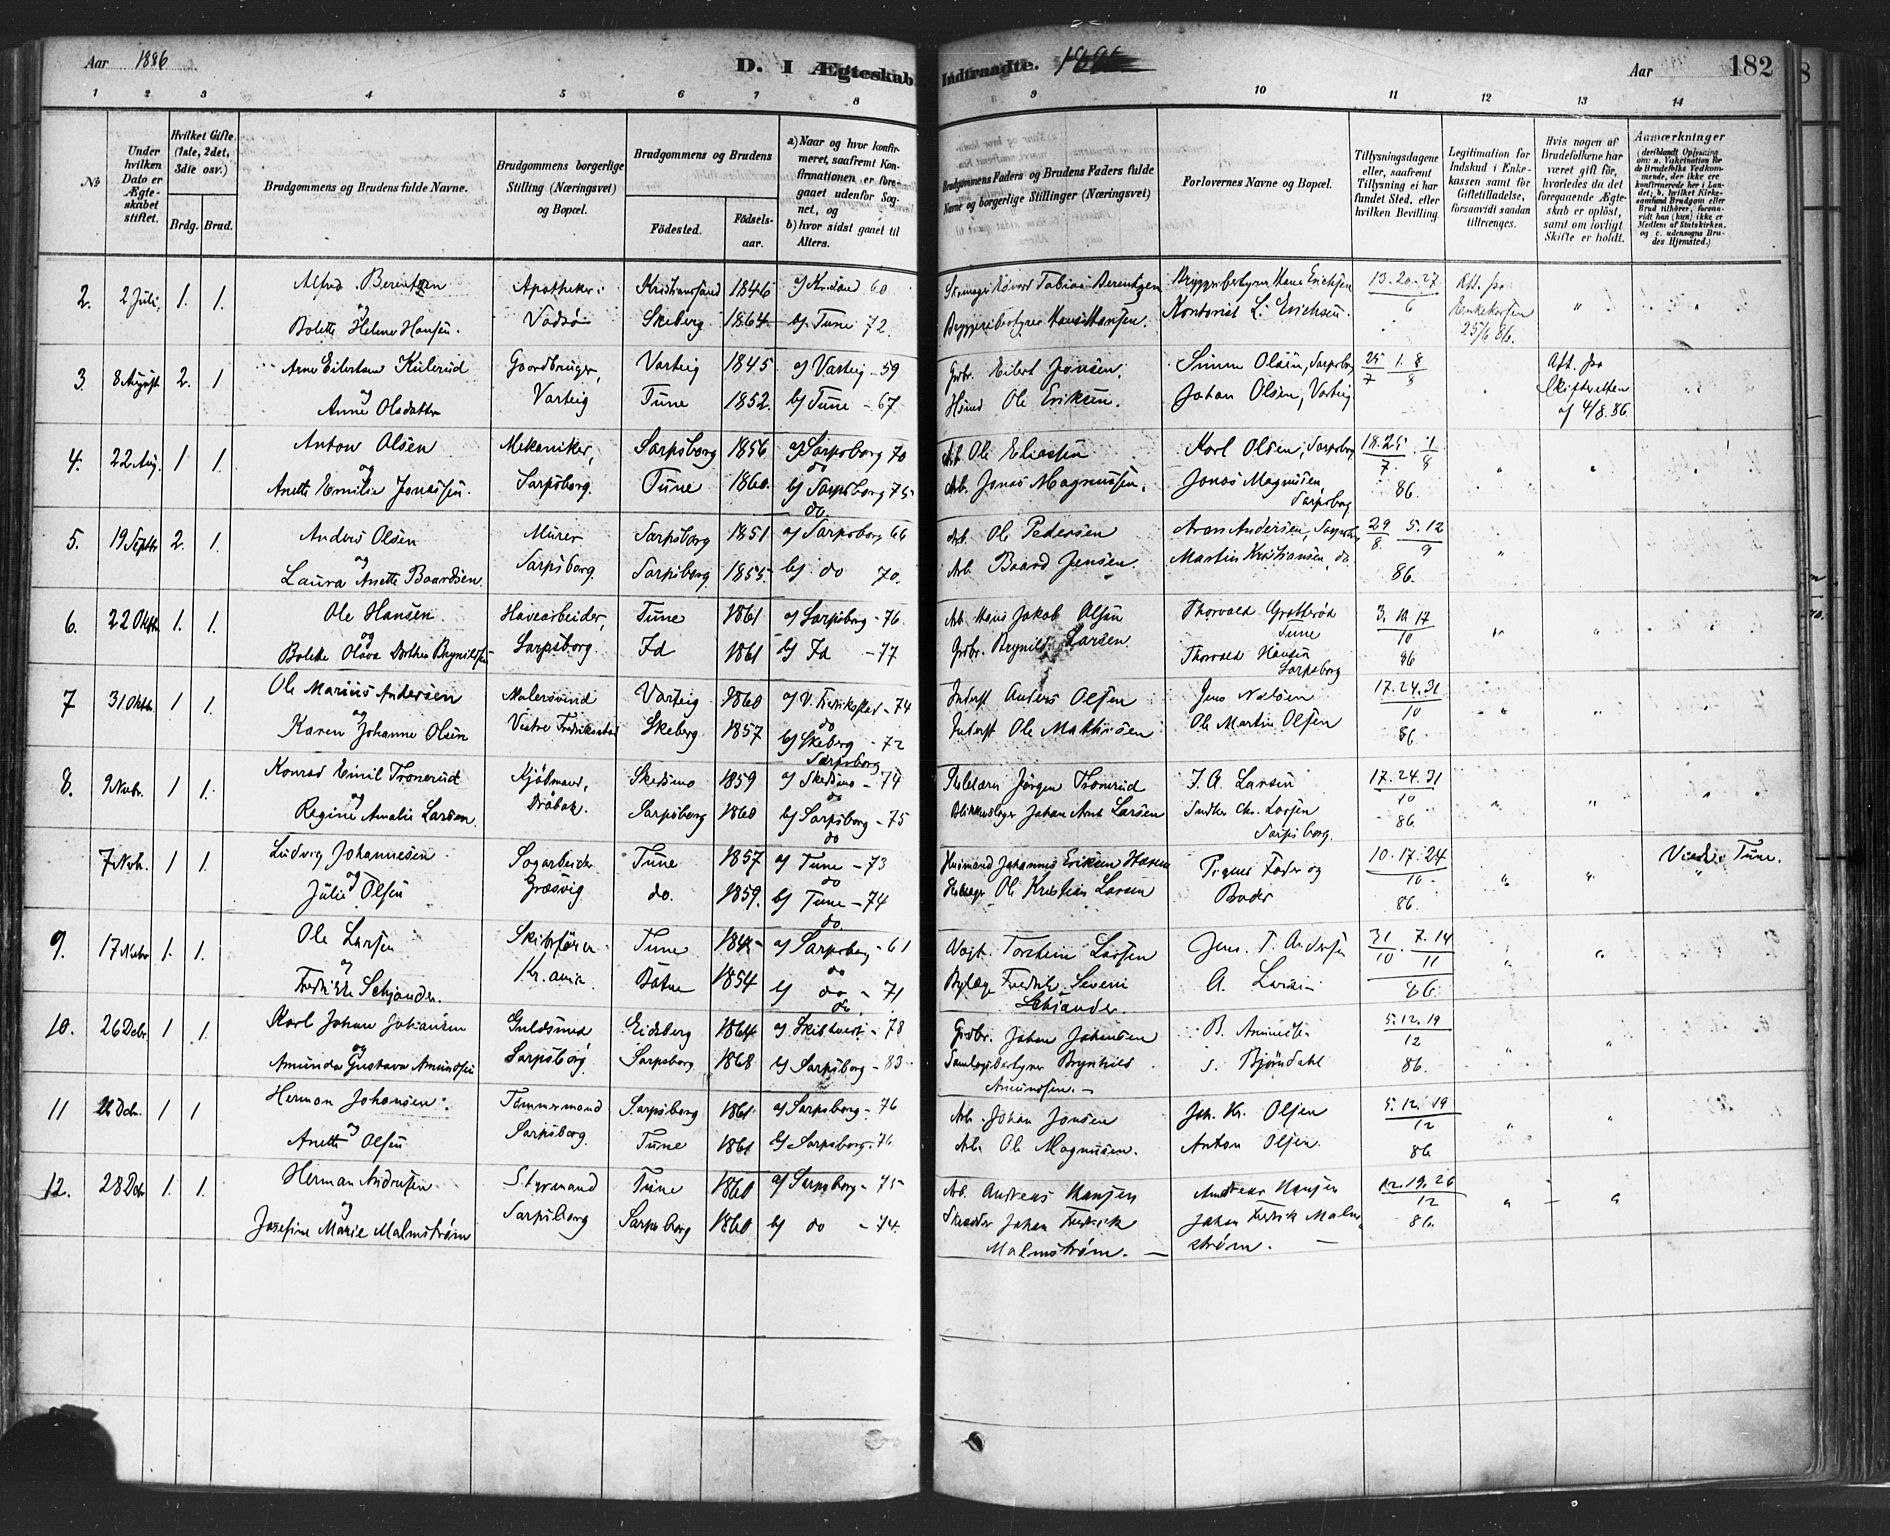 Aar 1886
D. I Ægteskab Indtraadte.
Aar 182
1 2 3 4 5 6 7 8 9 10 11 12 13 14
No
Under hvilken Dato er Ægteskabet stiftet.
Hvilket Gifte (1ste, 2det, 3die osv.)
Brdg. Brud.
Brudgommens og Brudens fulde Navne.
Brudgommens borgerlige Stilling (Næringsvei) og Bopæl.
Brudgommens og Brudens
Födested. Födselsaar.
a) Naar og hvor konfirmeret, saafremt Konfirmationen er foregaaet udenfor Sognet, og
b) hvor sidst gaaet til Alters.
Brudgommens Faders og Brudens Faders fulde Navne og borgerlige Stillinger (Næringsvei)
Forlovernes Navne og Bopæl.
Tillysningsdagene eller, saafremt Tillysning ei har fundet Sted, efter hvilken Bevilling.
Legitimation for Indskud i Enkekassen samt for Giftetilladelse, forsaavidt saadan tiltrænges.
Hvis nogen af Brudefolkene har været gift før, hvorledes da det foregaaende Ægteskab er opløst, samt om lovligt Skifte er holdt.
Anmærkninger
2. 2 Juli, 1. 1. Alfred Berentzen Apotheker Kristianssand 1846 a) Krsand 60 Tobias Berentzen Bryggeribestyrer Hans Erichsen 13. 20. 27 Att. fra
og Bolette Helene Hansen. Vadsø Skeberg 1864 b) Tune 72. Bryggeribestyrer Hans Hansen. Kontorist L. Erichsen. 6 Enkekassen
25/6 86.
3. 8 August 2. 1 Arne Eilertsen Kulerud Gaardbruger, Varteig 1845 a) Varteig - 59 Grdbr. Eilert Jonsen. Simen Olsen, Sarpsborg 25/7 1. 8/8 Att. fra
og Anne Olsdatter Varteig Tune 1852. b) Tune - 67. Husmd Ole Eriksen. Johan Olsen, Varteig Skifteretten
af 4/8. 86.
4. 22 Aug. 1 1. Anton Olsen Mekaniker, Sarpsborg 1856 a) Sarpsborg 70 Arb. Ole Eliasen Karl Olsen, Sarpsborg 18. 25/7 1/8
og Anette Emilie Jonassen. Sarpsborg. Tune 1860. b) Sarpsborg 75 Arb. Jonas Magnussen. Jonas Magnusen Sarpsborg 86
do.
5. 19 Septbr 2. 1. Anders Olsen Murer Sarpsborg 1851 a) Sarpsborg 66 Arb. Ole Pedersen Aron Andersen, Sarpsborg 29/8. 5. 12/9
og Laura Anette Baardsen. Sarpsborg. Sarpsborg. 1855 b) do 70. Arb. Baard Jensen. Martin Kristiansen, do. 86.
6. 22 Oktbr 1. 1. Ole Hansen. Havearbeider, Tune 1861 a) Sarpsborg - 76. Arb. Hans Jakob Olsen Thorvald Grøtterød Tune 3. 10. 17/10
og Bolette Olava Dorthea Brynildsen Sarpsborg Id 1861 b) Id - 77 Grdbr. Brynild Larsen. Thorvald Hansen Sarpsborg 86
7 31 Oktbr. 1 1. Ole Marius Andersen Malersvend Varteig 1860 a) V. Fredrikstad - 74 Inderst Anders Olsen Jens Nilsen 17. 24. 31/10
og Karen Johanne Olsen Vestre Fredrikstad Skeberg 1857 b) Skeberg - 72 Inderst Ole Mathisen Ole Martin Olsen 86.
Sarpsborg
8. Novbr. 1 1. Konrad Emil Tronerud Kjøbmand, Skedsmo 1859 a) Skedsmo - 74 Jørgen Tronerud J. A. Larsen 17. 24. 31/10
og Regine Amalie Larsen. Drøbak. Sarpsborg 1860 b) Sarpsborg - 75 Blikkenslager Johan Arnt Larsen Chr. Larsen Sarpsborg. 86
do
7 Novbr. 1 1. Ludvig Johannesen Sagarbeider Tune 1857 a) Tune - 73 Husmand Johannes Eriksen Pigens Fader og 10. 17. 24/10. Viede i Tune.
og Julie Olsen Græsvig do. 1859. b) Tune - 74 Ole Kristian Larsen Broder 86.
do.
9. 17 Novbr 1. 1. Ole Larsen Skibsfører Tune a) Sarpsborg - 61 Vogt. Torstein Larsen Jens T. Andersen 31/10. 7. 14/11
og Fredrikke Schjander. Kr.ania 1854 b) do - 71 Fredrik Severin Schjander. A. Larsen 86
do
10. 26 Decbr 1 1. Karl Johan Johansen Guldsmed Eidsberg 1864 a) Skibtvedt - 78 Grdbr. Johan Johansen B. Amundsen 5. 12. 19/12
og Amunda Gustava Amundsen Sarpsborg Sarpsborg 1868 b) Sarpsborg - 83 Brynhild Amundsen. - Bjørndahl 86.
11 26 Dcbr. 1 1 Herman Johansen. Tømmermand Sarpsborg 1861 a) Sarpsborg - 76 Arb. Johan Jonsen Joh. Kr. Olsen 5. 12. 19/12
og Anette Olsen Sarpsborg. Tune 1861 b) Sarpsborg - 76. Arb. Ole Magnusen. Anton Olsen 86
12. 28 Dcbr 1. 1. Herman Andresen Styrmand Tune 1860 a) Sarpsborg - 75 Arb. Andreas Hansen Andreas Hansen 12. 19. 26/12
og Josefine Marie Malmstrøm Sarpsborg Sarpsborg 1860 b) do - 74. Skrædder Johan Fredrick Malmstrøm. - Johan Fredrik Malmstrøm. - 86.